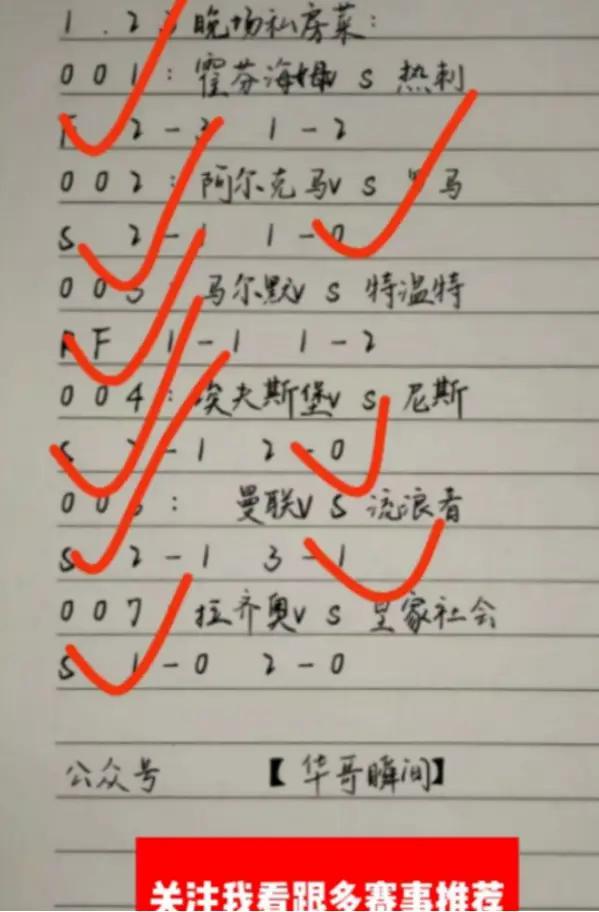 1.23晚场私房菜:
001:霍芬海姆vs热刺
F 2-3 1-2
002:阿尔克马vs罗马
S 2-1 1-0
003:马尔默vs特温特
PF 1-1 1-2
004:埃夫斯堡vs尼斯
S 2-1 2-0
005: 曼联vs流浪者
S 2-1 3-1
007:拉齐奥vs皇家社会
S 1-0 2-0
公众号 【华哥瞬间】
关注我看跟多赛事推荐